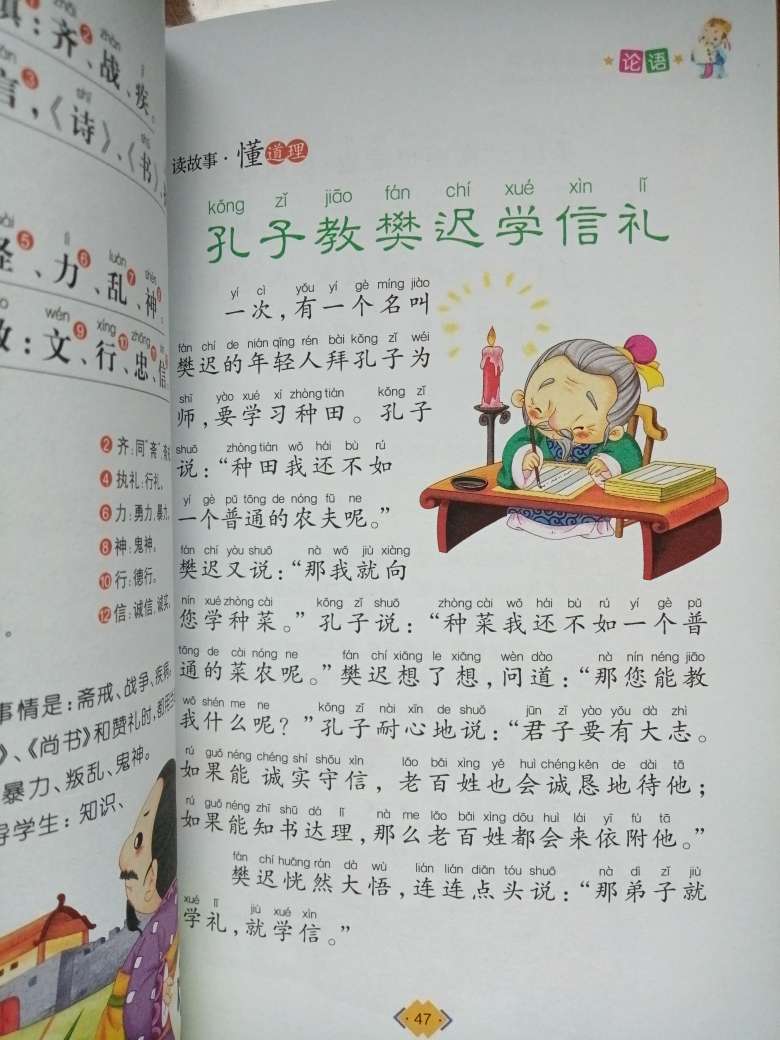 齐、战、疾。
言，《诗》、《书》
力、乱、神。
文、行、忠、信
② 齐：同“斋”
④ 执礼：行礼。
⑥ 力：勇力、暴力。
⑧ 神：鬼神。
⑩ 行：德行。
⑫ 信：诚信、诚实。
事情是：斋戒、战争、疾病。
》、《尚书》和赞礼时，都用
暴力、叛乱、鬼神。
导学生：知识、
论语
读故事·懂道理
kǒng zǐ jiāo fán chí xué xìn lǐ
孔子教樊迟学信礼
yí cì yǒu yí gè míng jiào
一次，有一个名叫
fán chí de nián qīng rén bài kǒng zǐ wéi
樊迟的年轻人拜孔子为
shī yào xué xí zhòng tián kǒng zǐ
师，要学习种田。孔子
shuō zhòng tián wǒ hái bù rú
说：“种田我还不如
yí gè pǔ tōng de nóng fū ne
一个普通的农夫呢。”
fán chí yòu shuō nà wǒ jiù xiàng
樊迟又说：“那我就向
nín xué zhòng cài kǒng zǐ shuō zhòng cài wǒ hái bù rú yí gè pǔ
您学种菜。”孔子说：“种菜我还不如一个普
tōng de cài nóng ne fán chí xiǎng le xiǎng wèn dào nà nín néng jiāo
通的菜农呢。”樊迟想了想，问道：“那您能教
wǒ shén me ne kǒng zǐ nài xīn de shuō jūn zǐ yào yǒu dà zhì
我什么呢？”孔子耐心地说：“君子要有大志。
rú guǒ néng chéng shí shǒu xìn lǎo bǎi xìng yě huì chéng kěn de dài tā
如果能 诚实守信，老百姓也会诚恳地待他；
rú guǒ néng zhī shū dá lǐ nà me lǎo bǎi xìng dōu huì lái yī fù tā
如果能知书达理，那么老百姓都会来依附他。”
fán chí huǎng rán dà wù lián lián diǎn tóu shuō nà dì zǐ jiù
樊迟恍然大悟，连连点头说：“那弟子就
xué lǐ jiù xué xìn
学礼，就学信。”
·47·